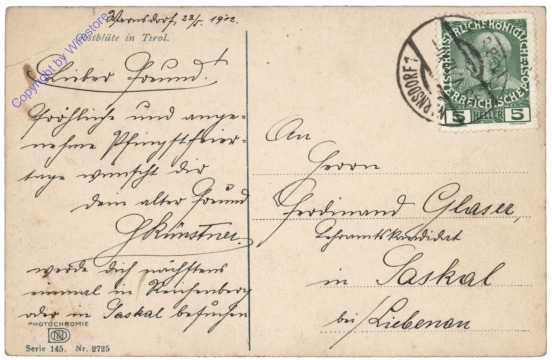 Warnsdorf, 23/5 1912.
Obstblüte in Tirol.
Lieber Freund!
Fröhliche und ange-
nehme Pfingstfeier-
tage wünscht dir
dein alter Freund
GKünstner.
werde dich nächstens
einmal in Reichenberg
oder in Saskal besuchen
PHOTOCHROMIE
Serie 145. Nr. 2725
Copyright by Wimstore
WARNSDORF 1
5 HELLER 5
An
Herrn
Ferdinand Glaser,
Lehramtskandidat
in Saskal
bei/Liebenau